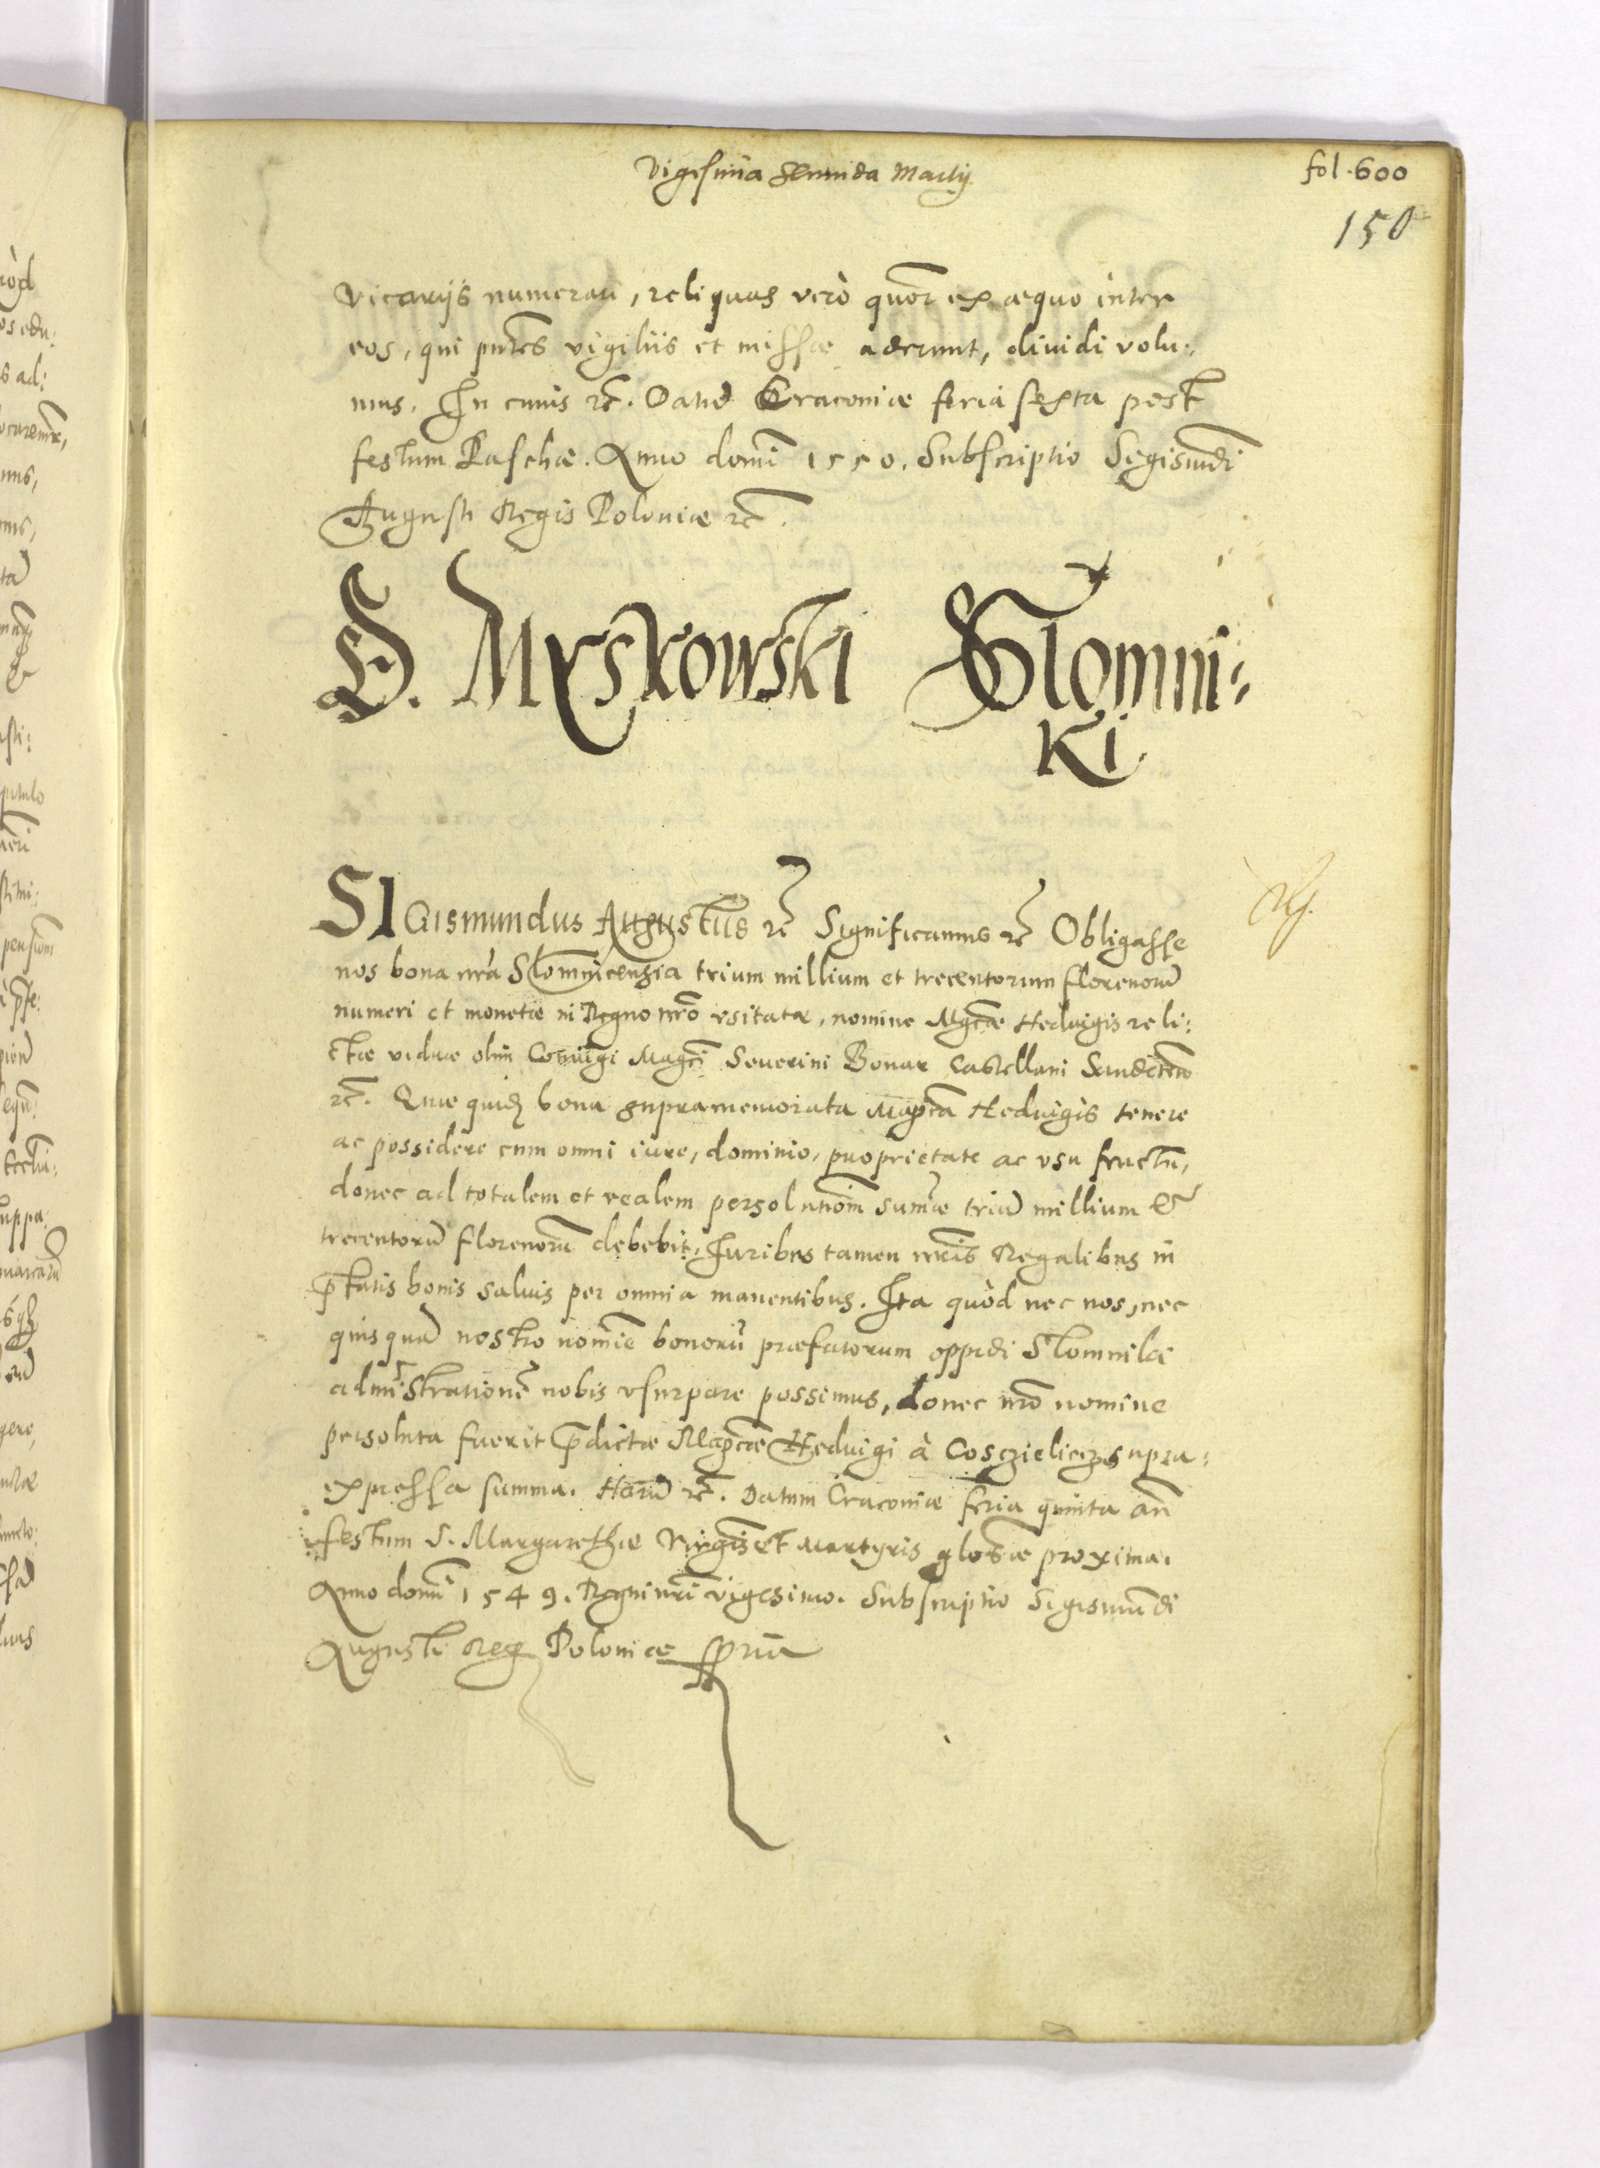 Vigesima secunda Martij
fol. 600
150
Vicarijs numerari, reliquas verò quōr ex æquo inter
eos, qui pn̄tes vigiliis et missæ aderunt, diuidi volu:
mus. In cuius rē. Datū Cracoviæ feria sexta post
festum Paschæ. Anno domī 1550. Subscriptio Sigismūdi
Augusti Regis Poloniæ rē.
D. Myskowski Slomni:
ki.
SIGismundus Augustus rē Significamus rē Obligasse
nos bona nr̄a Slomnicensia trium millium et trecentorum florenorū
numeri et monetæ in Regno nr̄o vsitatæ, nomine Mgcæ Heduigis reli:
ctæ viduæ olim Coniugi Magcī Seuerini Bonar Castellani Sandec̄
rē. Quæ quidē bona supramemorata Magcā Heduigis tenere
ac possidere cum omni iure, dominio, proprietate ac vsu fructu,
donec ad totalem et realem persolutiōm sum̄æ triū millium &
trecentorū florenorū debebit, Juribus tamen nr̄is Regalibus in
p̄fatis bonis saluis per omnia manentibus. Ita quòd nec nos, nec
quisquā nostro nomīe bonorū præfatorum oppidi Slomnikæ
administrationē nobis vsurpare possimus, donec nr̄o nomine
persoluta fuerit p̄dictæ Magcæ Heduigi à Cosczieliecz supra:
expressa summa. Harū rē. Datum Cracoviæ feria quinta an̄
festum S. Margarethæ Virginis et Martyris glosæ proxima.
Anno domī 1549. Regni nr̄i vigesimo. Subscriptio Sigismundi
Augusti Reg Poloniæ